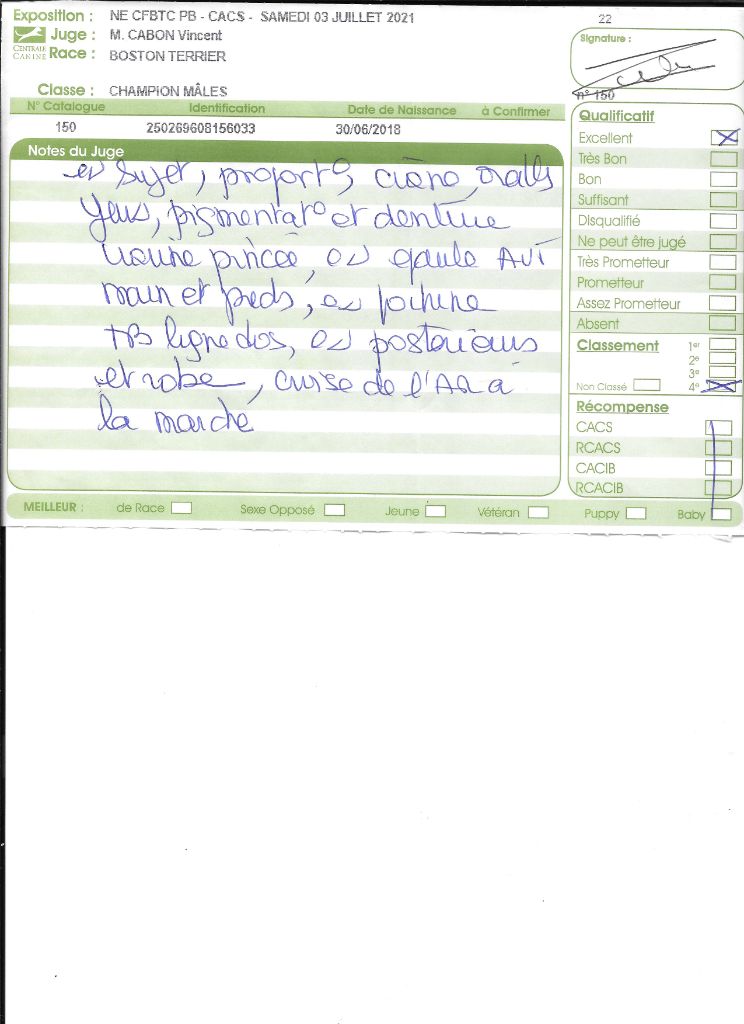 Exposition : NE CFBTC PB - CACS - SAMEDI 03 JUILLET 2021
22
CENTRALE CANINE
Juge : M. CABON Vincent
Race : BOSTON TERRIER
Signature :
n° 150
Classe : CHAMPION MÂLES
N° Catalogue Identification Date de Naissance à Confirmer
150 250269608156033 30/06/2018
Notes du Juge
sujet, proport°, crâne, oreilles
yeux, pigmentat° et denture
narine pincée, gueule AVT
main et pieds, poitrine
TB ligne dos, postérieurs
et robe, cuisse de l'AR à
la marche
Qualificatif
Excellent
Très Bon
Bon
Suffisant
Disqualifié
Ne peut être jugé
Très Prometteur
Prometteur
Assez Prometteur
Absent
Classement 1er
2e
3e
Non Classé 4e
Récompense
CACS
RCACS
CACIB
RCACIB
MEILLEUR : de Race Sexe Opposé Jeune Vétéran Puppy Baby